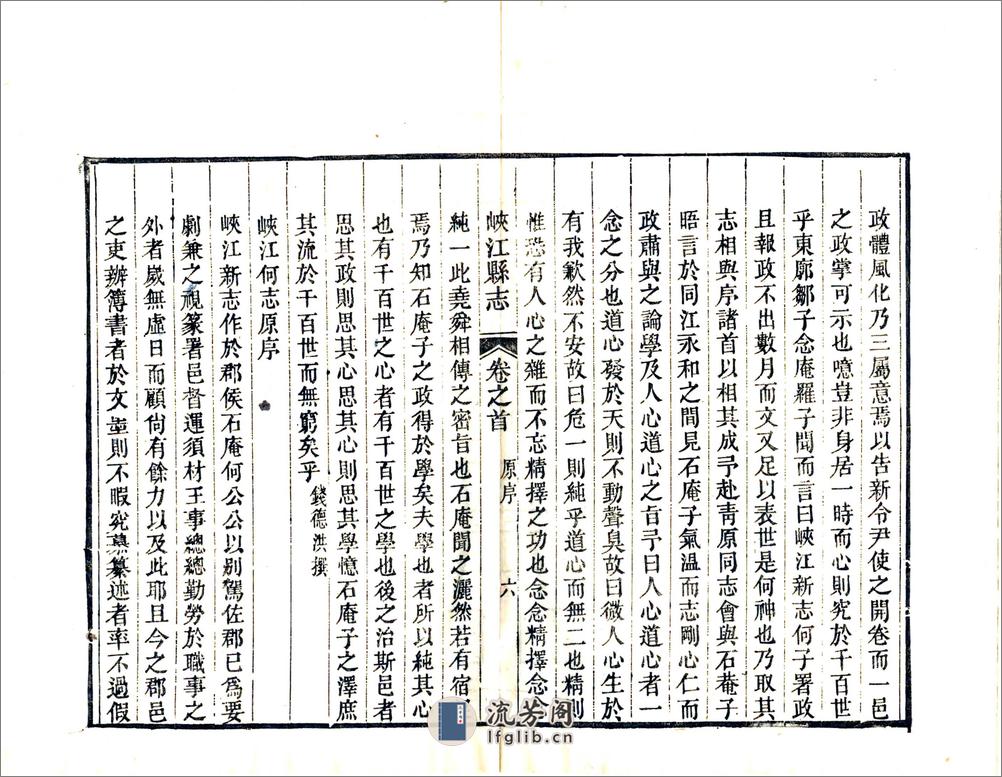 政體風化乃三屬意焉以告新令尹使之開卷而一邑
之政掌可示也噫豈非身居一時而心則究於千百世
乎東廓鄒子念庵羅子聞而言曰峽江新志何子署政
且報政不出數月而文又足以表世是何神也乃取其
志相與序諸首以相其成予赴靑原同志會與石菴子
晤言於同江永和之間見石庵子氣溫而志剛心仁而
政肅與之論學及人心道心之旨予曰人心道心者一
念之分也道心發於天則不動聲臭故曰微人心生於
有我歉然不安故曰危一則純乎道心而無二也精則
惟恐有人心之雜而不忘精擇之功也念念精擇念念
峽江縣志
卷之首
原序
六
純一此堯舜相傳之密旨也石庵聞之灑然若有宿契
焉乃知石庵子之政得於學矣夫學也者所以純其心
也有千百世之心者有千百世之學也後之治斯邑者
思其政則思其心思其心則思其學憶石庵子之澤庶
其流於千百世而無窮矣乎
錢德洪撰
峽江何志原序
峽江新志作於郡侯石庵何公公以別駕佐郡已爲要
劇兼之視篆署邑督運須材王事總總勤勞於職事之
外者歲無虛日而顧尙有餘力以及此耶且今之郡邑
之吏辦簿書者於文𦘦則不暇究慕纂述者率不過假
流芳阁
lfglib.cn